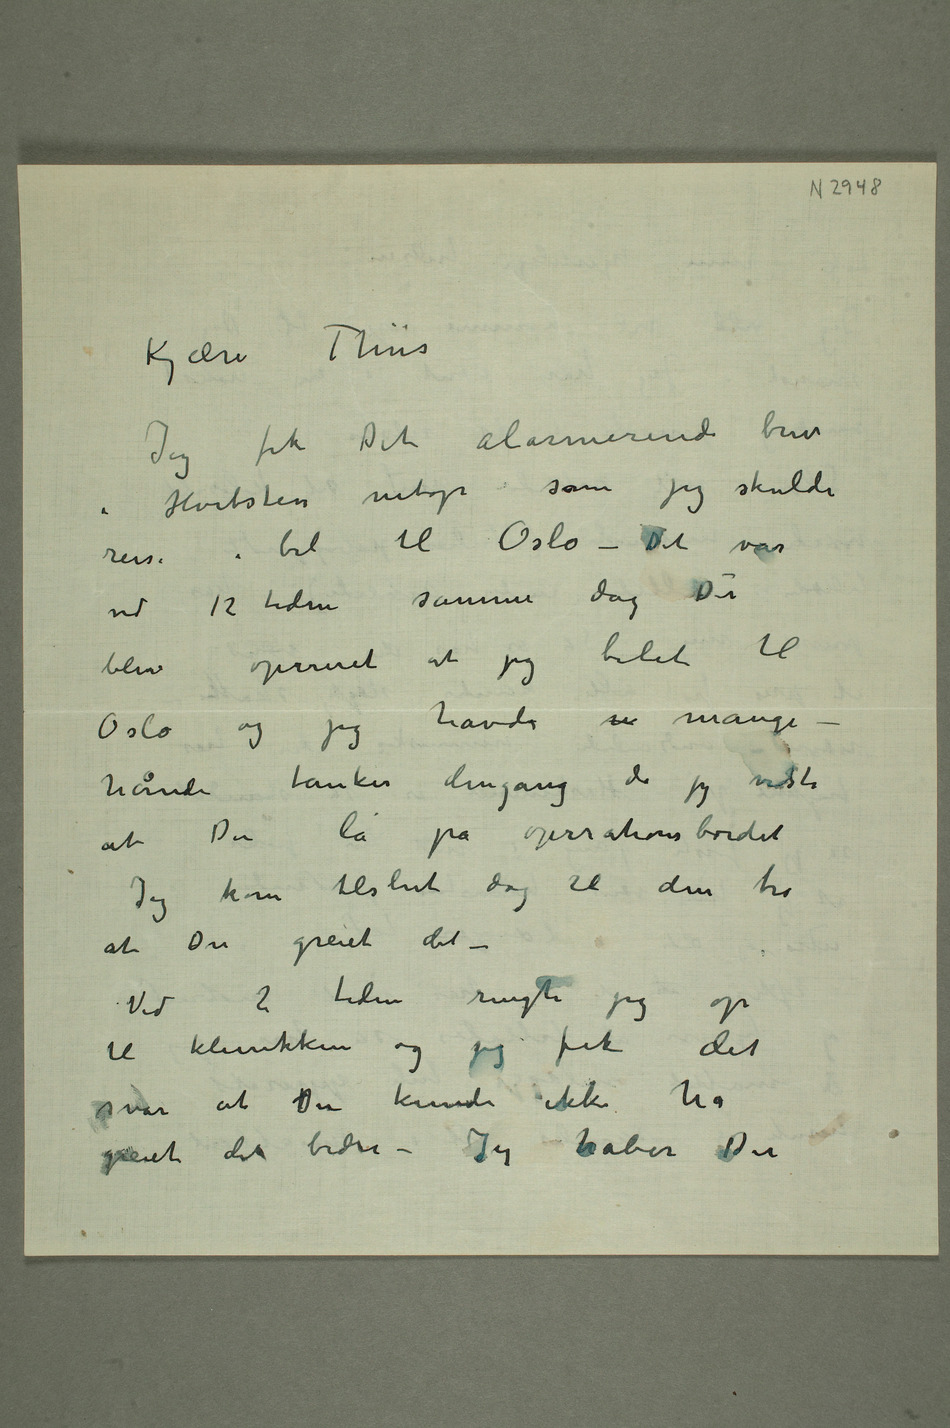 N 2948
Kjære Thiis
Jeg fik Dit alarmerende brev
i Hvitsten netop som jeg skulde
reise i bil til Oslo – Det var
ved 12 tiden samme dag Du
blev operert at jeg bilet til
Oslo og jeg havde mange –
hånde tanker dengang da jeg vidste
at Du lå på operationsbordet
Jeg kom tilslut dog til den tro
at Du greiet det –
Ved 2 tiden ringte jeg op
til klinikken og jeg fik det
svar at Du kunde ikke ha
greiet det bedre – Jeg håber Du